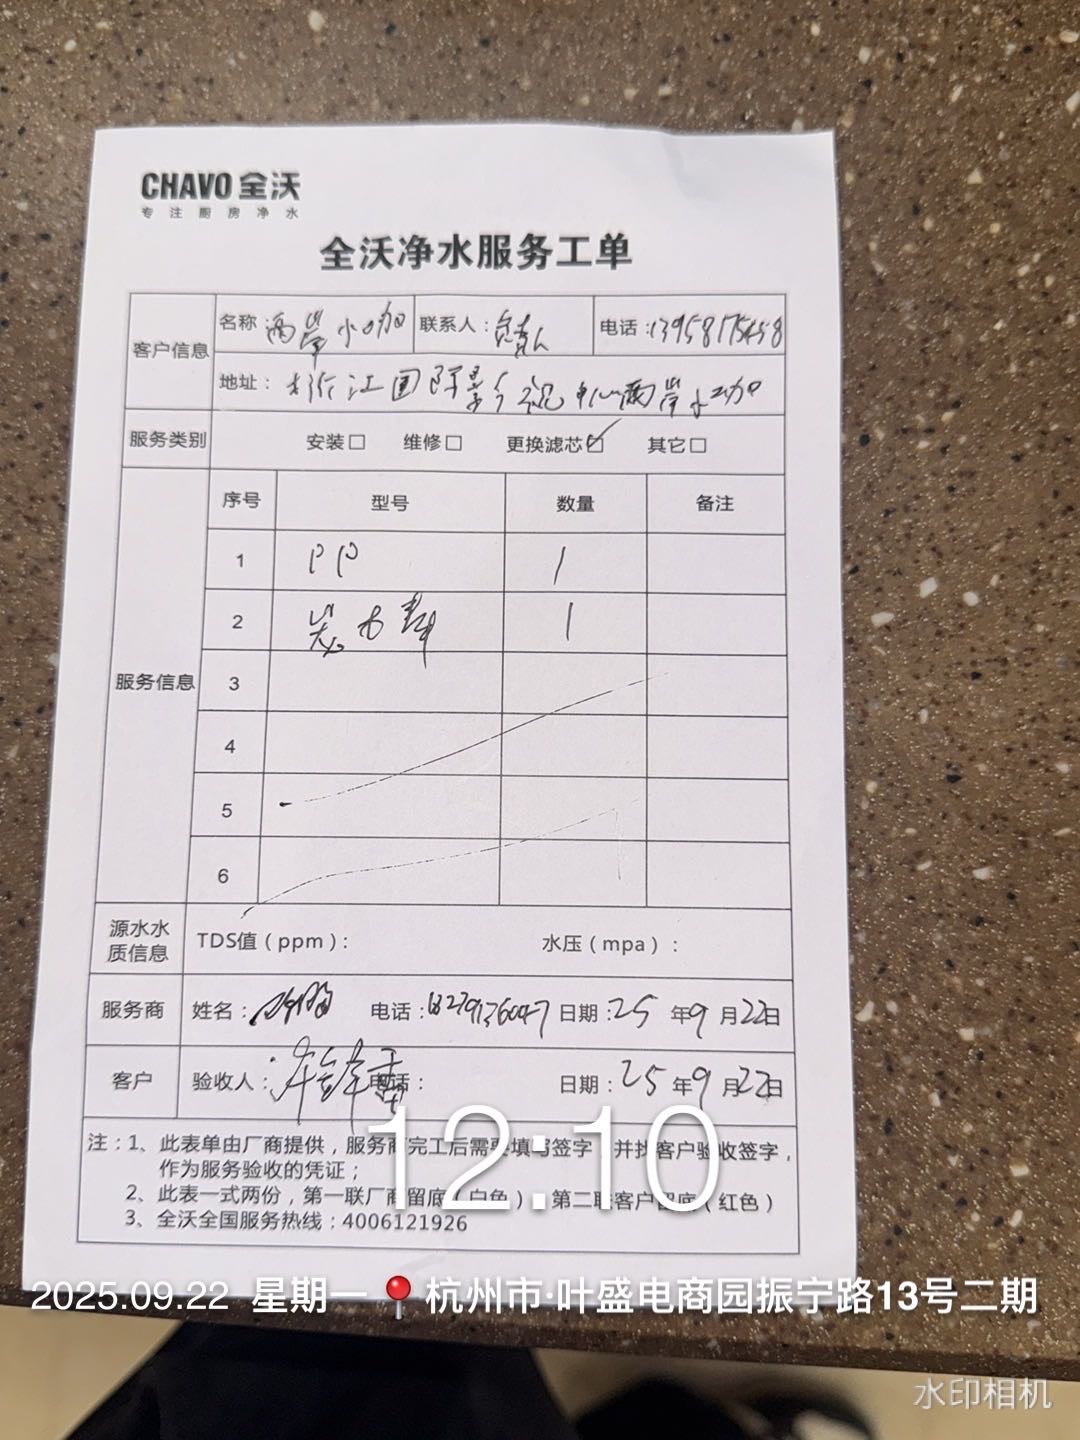 CHAVO 全沃
专注厨房净水
全沃净水服务工单
客户信息 名称 两岸小咖 联系人：负责人 电话：13958175458
地址：浙江国际影视中心两岸小咖
服务类别 安装□ 维修□ 更换滤芯☑ 其它□
服务信息 序号 型号 数量 备注
1 PP 1
2 1
3
4
5
6
源水水质信息 TDS值（ppm）： 水压（mpa）：
服务商 姓名： 电话： 日期：25年9月22日
客户 验收人： 电话： 日期：25年9月22日
12:10
注：1、此表单由厂商提供，服务商完工后需要填写签字，并找客户验收签字，
作为服务验收的凭证；
2、此表一式两份，第一联厂商留底（白色），第二联客户留底（红色）
3、全沃全国服务热线：4006121926
2025.09.22 星期一 杭州市·叶盛电商园振宁路13号二期
水印相机